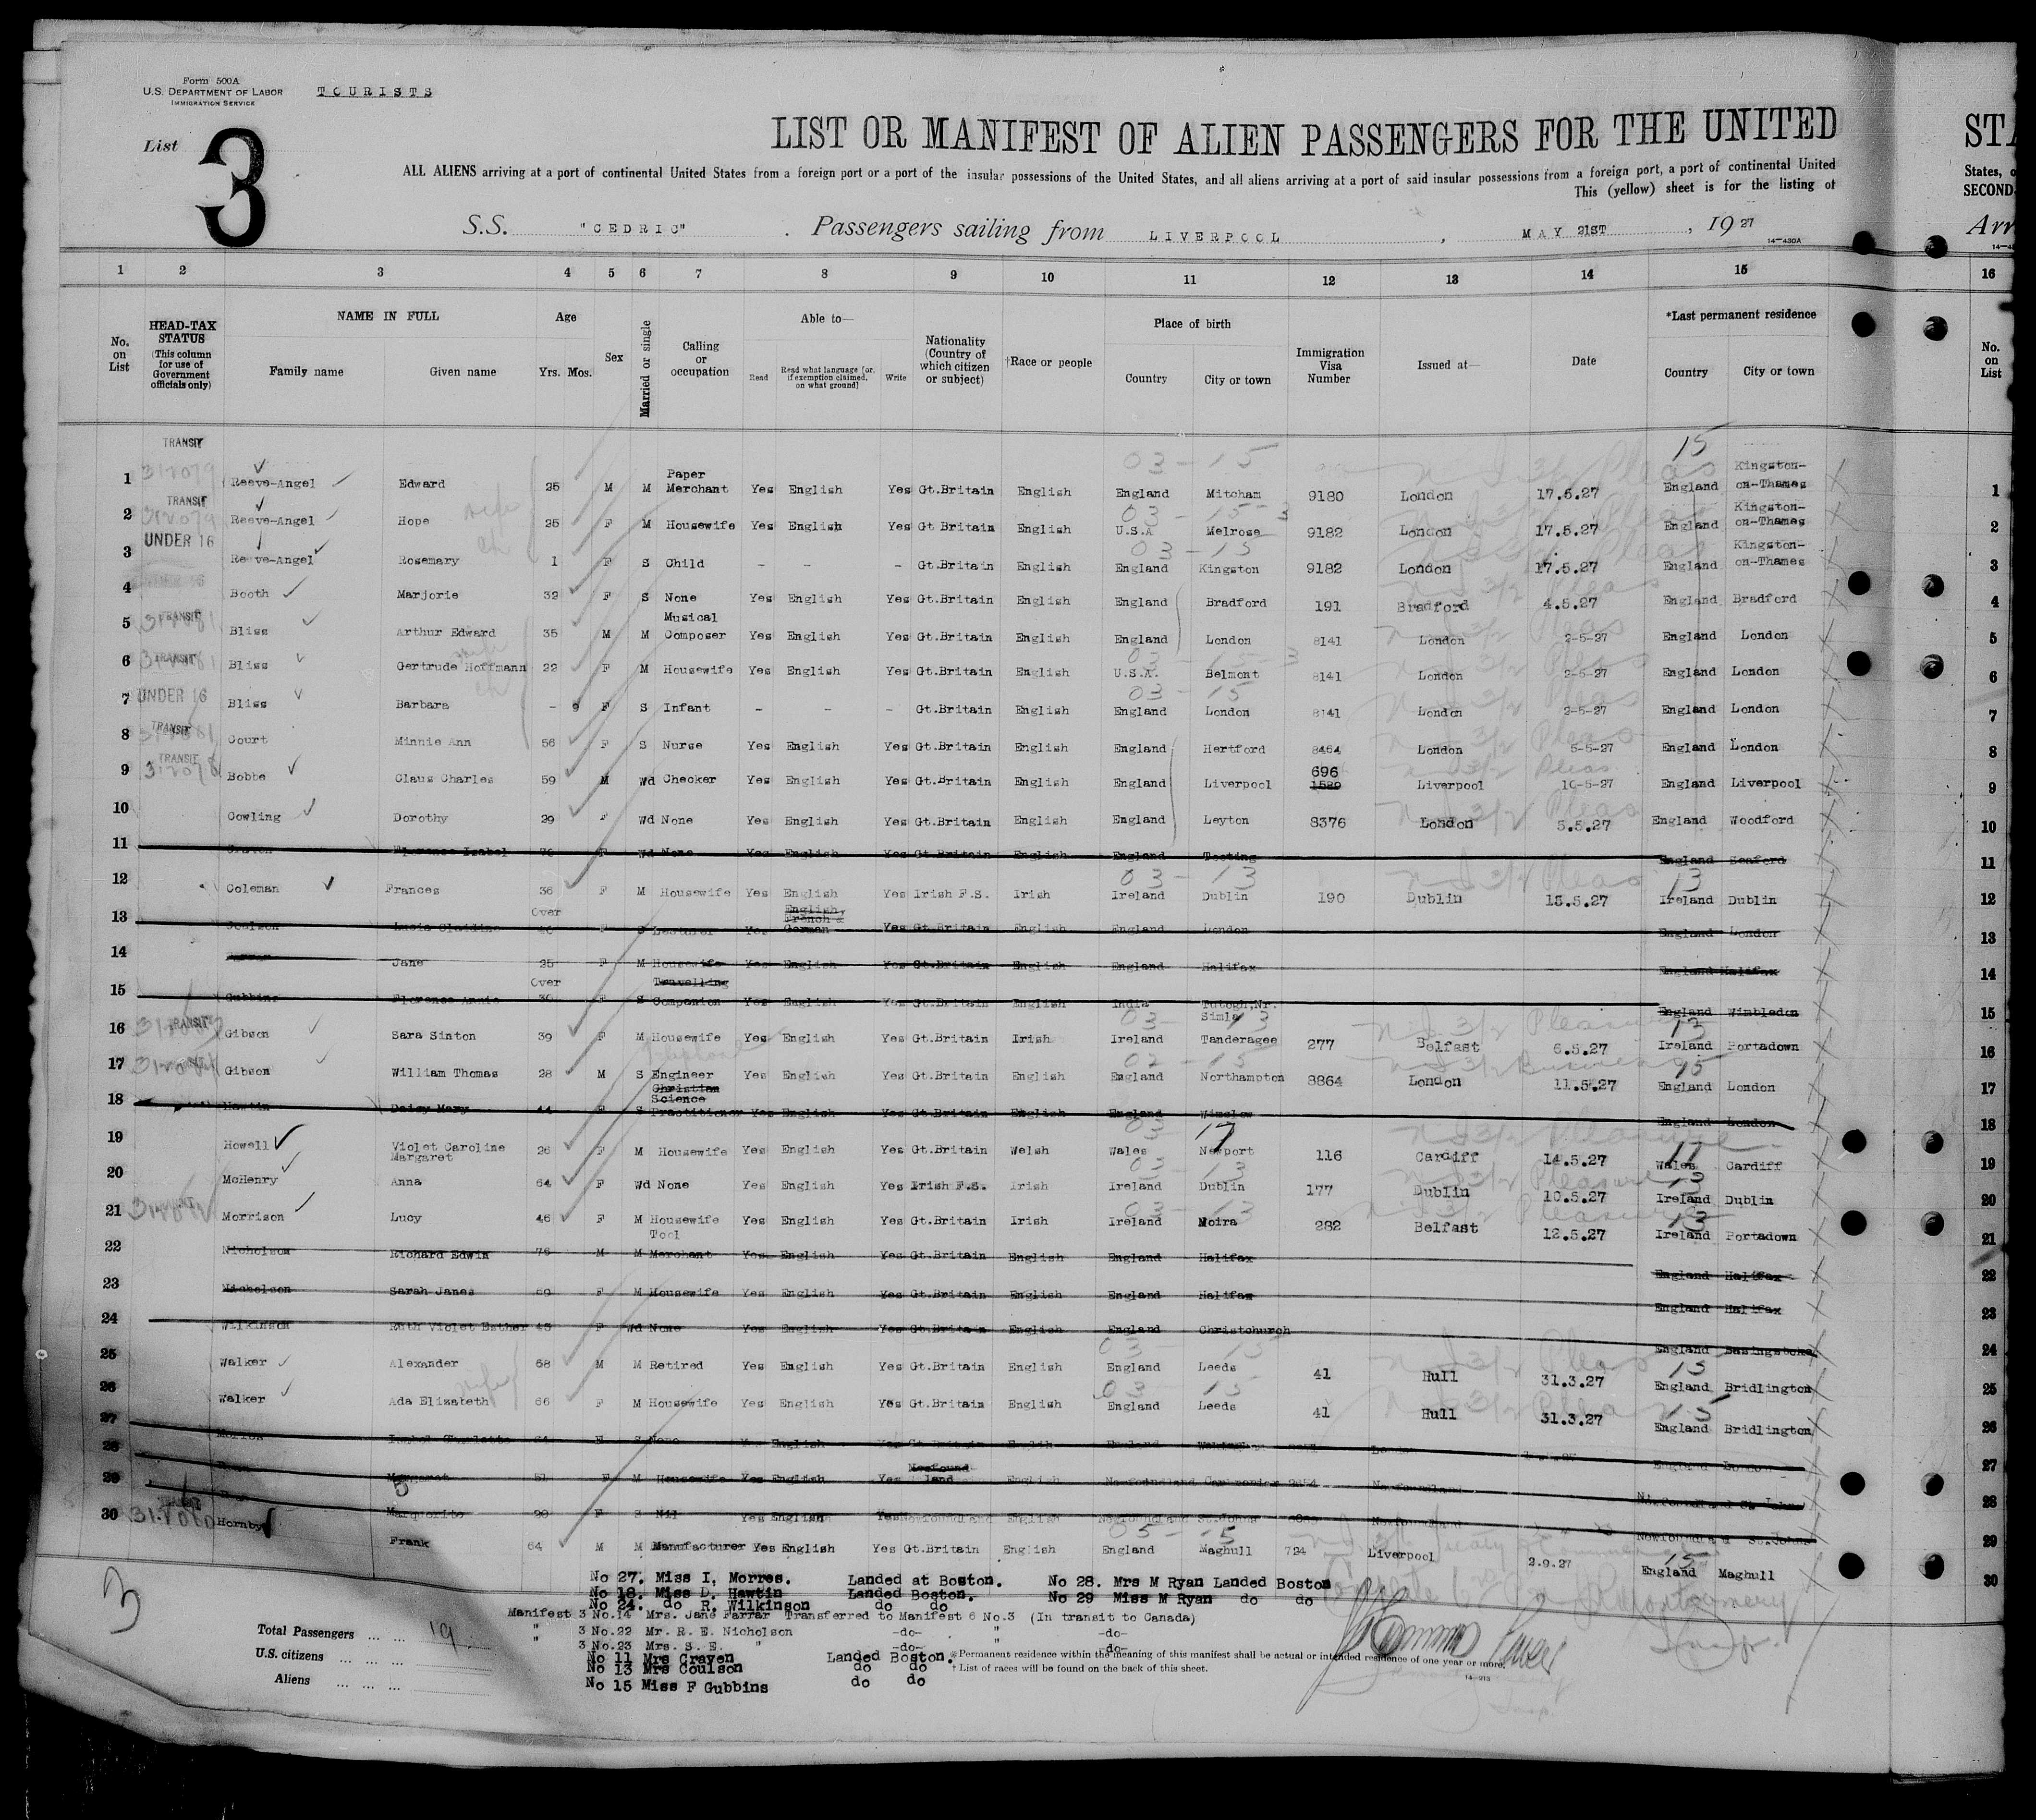 Form 500A
U.S. DEPARTMENT OF LABOR
IMMIGRATION SERVICE
TOURISTS
List 3
LIST OR MANIFEST OF ALIEN PASSENGERS FOR THE UNITED STA
ALL ALIENS arriving at a port of continental United States from a foreign port or a port of the insular possessions of the United States, and all aliens arriving at a port of said insular possessions from a foreign port, a port of continental United States, o
This (yellow) sheet is for the listing of SECOND-
S.S. "CEDRIC" . Passengers sailing from LIVERPOOL , MAY 21ST , 19 27 Arr
14-430A
1 2 3 4 5 6 7 8 9 10 11 12 13 14 15 16
No. on List
HEAD-TAX STATUS (This column for use of Government officials only)
NAME IN FULL
Family name Given name
Age
Yrs. Mos.
Sex
Married or single
Calling or occupation
Able to—
Read Read what language [or, if exemption claimed, on what ground] Write
Nationality (Country of which citizen or subject)
†Race or people
Place of birth
Country City or town
Immigration Visa Number
Issued at—
Date
*Last permanent residence
Country City or town
No. on List
1 TRANSIT Reeve-Angel Edward 25 M M Paper Merchant Yes English Yes Gt.Britain English England Mitcham 9180 London 17.5.27 England Kingston-on-Thames 1
2 TRANSIT Reeve-Angel Hope 25 F M Housewife Yes English Yes Gt Britain English U.S.A Melrose 9182 London 17.5.27 England Kingston-on-Thames 2
3 UNDER 16 Reeve-Angel Rosemary 1 F S Child - - - Gt.Britain English England Kingston 9182 London 17.5.27 England Kingston-on-Thames 3
4 Booth Marjorie 32 F S None Yes English Yes Gt.Britain English England Bradford 191 Bradford 4.5.27 England Bradford 4
5 TRANSIT Bliss Arthur Edward 35 M M Musical Composer Yes English Yes Gt.Britain English England London 8141 London 2-5-27 England London 5
6 TRANSIT Bliss Gertrude Hoffmann 22 F M Housewife Yes English Yes Gt.Britain English U.S.A. Belmont 8141 London 2-5-27 England London 6
7 UNDER 16 Bliss Barbara - 9 F S Infant - - - Gt.Britain English England London 8141 London 2-5-27 England London 7
8 TRANSIT Court Minnie Ann 56 F S Nurse Yes English Yes Gt.Britain English England Hertford 8464 London 5-5-27 England London 8
9 TRANSIT Bobbe Claus Charles 59 M Wd Checker Yes English Yes Gt.Britain English England Liverpool 696 Liverpool 10-5-27 England Liverpool 9
10 Cowling Dorothy 29 F Wd None Yes English Yes Gt.Britain English England Leyton 8376 London 5.5.27 England Woodford 10
11 Florence Isabel F Wd None Yes English Yes Gt.Britain English England Tooting England Seaford 11
12 Coleman Frances 36 F M Housewife Yes English Yes Irish F.S. Irish Ireland Dublin 190 Dublin 13.5.27 Ireland Dublin 12
13 Coulson Over 40 F S Lecturer Yes English, French & German Yes Gt.Britain English England London England London 13
14 Jane 25 F M Housewife Yes English Yes Gt.Britain English England Halifax England Halifax 14
15 Gubbins Florence Annie Over 30 F S Travelling Companion Yes English Yes Gt.Britain English India Simla England Wimbledon 15
16 TRANSIT Gibson Sara Sinton 39 F M Housewife Yes English Yes Gt.Britain Irish Ireland Tanderagee 277 Belfast 6.5.27 Ireland Portadown 16
17 Gibson William Thomas 28 M S Engineer Yes English Yes Gt.Britain English England Northampton 8864 London 11.5.27 England London 17
18 Hawtin Daisy Mary 44 F S Christian Science Practitioner Yes English Yes Gt.Britain English England Winslow England London 18
19 Howell Violet Caroline Margaret 26 F M Housewife Yes English Yes Gt.Britain Welsh Wales Newport 116 Cardiff 14.5.27 Wales Cardiff 19
20 McHenry Anna 64 F Wd None Yes English Yes Irish F.S. Irish Ireland Dublin 177 Dublin 10.5.27 Ireland Dublin 20
21 Morrison Lucy 46 F M Housewife Yes English Yes Gt.Britain Irish Ireland Moira 282 Belfast 12.5.27 Ireland Portadown 21
22 Nicholson Richard Edwin 76 M M Tool Merchant Yes English Yes Gt.Britain English England Halifax England Halifax 22
23 Nicholson Sarah Janes 69 F M Housewife Yes English Yes Gt.Britain English England Halifax England Halifax 23
24 Wilkinson Ruth Violet Esther 45 F Wd None Yes English Yes Gt.Britain English England Christchurch England Basingstoke 24
25 Walker Alexander 68 M M Retired Yes English Yes Gt.Britain English England Leeds 41 Hull 31.3.27 England Bridlington 25
26 Walker Ada Elizabeth 66 F M Housewife Yes English Yes Gt.Britain English England Leeds 41 Hull 31.3.27 England Bridlington 26
27 F S None English England London 27
28 Margaret 51 F M Housewife Yes English Yes Newfoundland English Newfoundland Newfoundland Newfoundland St. Johns 28
29 Marguorite 20 F S Nil Yes English Yes Newfoundland English Newfoundland St.Johns Newfoundland Newfoundland St.Johns 29
30 Hornby Frank 64 M M Manufacturer Yes English Yes Gt.Britain English England Maghull 724 Liverpool 2.9.27 England Maghull 30
No 27. Miss I, Morres. Landed at Boston. No 28. Mrs M Ryan Landed Boston
No 18. Miss D. Hawtin Landed Boston. No 29 Miss M Ryan do do
No 24. do R. Wilkinson do do
Manifest 3 No.14 Mrs. Jane Farrar Transferred to Manifest 6 No.3 (In transit to Canada)
" 3 No.22 Mr. R. E. Nicholson -do- " -do-
" 3 No.23 Mrs. S. E. " -do- -do-
No 11 Mrs Craven Landed Boston.
No 13 Mrs Coulson do do
No 15 Miss F Gubbins do do
Total Passengers ... ... 19
U.S. citizens ... ... ...
Aliens ... ... ...
* Permanent residence within the meaning of this manifest shall be actual or intended residence of one year or more.
† List of races will be found on the back of this sheet.
14-213
3